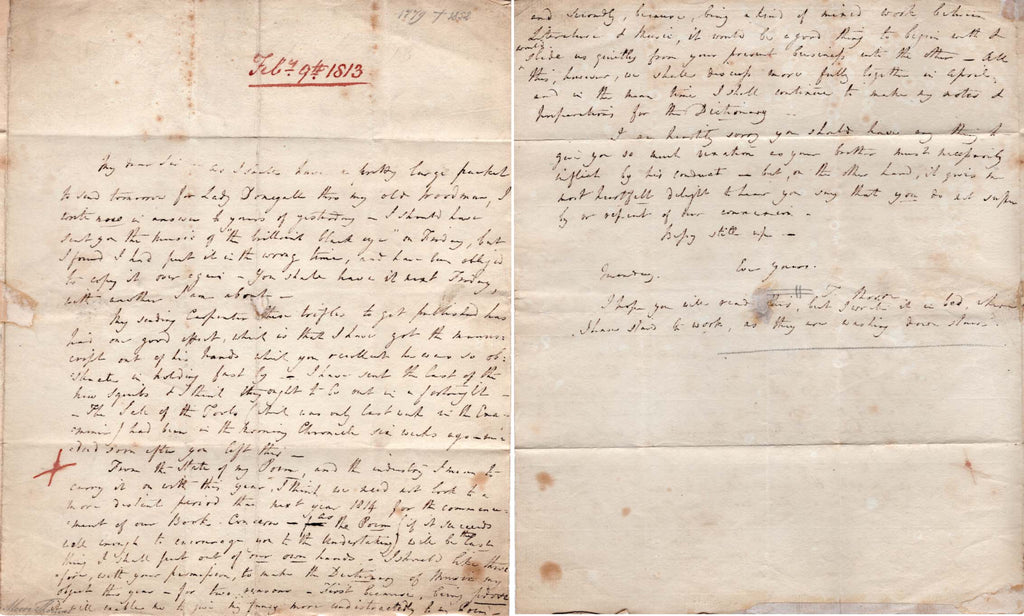 1779 + 1852
Feby. 9th 1813
My dear Sir – as I shall have a pretty large packet
to send tomorrow for Lady Donegall thro my old Woodman, I
write now in answer to yours of yesterday – I should have
sent you the Music of "the brilliant black eye" on Friday, but
I found I had put it in the wrong time, and have been obliged
to copy it over again – You shall have it next Friday,
with another I am about –
My sending Carpenter these trifles to get published has
had one good effect, which is that I have got the manu-
script out of his hands which you recollect he was so ob-
stinate in holding fast by – I have sent the last of the
new squibs & I think they ought to be out in a fortnight –
– The Sale of the Tools (that was only last week in the Exa-
aminer) had been in the Morning Chronicle six weeks ago –
soon after you left this –
From the State of my Poem, and the industry I mean to
carry it on with this year, I think we need not look to a
more distant period than next year 1814 for the commence-
ment of our Book-Concerns – the Poem (if it succeeds
well enough to encourage you to the Undertaking) will be the last
thing I shall put out of our own hands – I should like there-
fore, with your permission, to make the Dictionary of Music my
object this year – for two reasons – first because, being prose
will enable me to give my fancy more undistractedly to my Poem –
and secondly, because, being a kind of mixed work, between
Literature & Music, it would be a good thing to begin with &
would
slide us quietly from your present business into the other – All
this, however, we shall discuss more fully together in April,
and in the mean time I shall continue to make my notes &
preparations for the Dictionary –
I am heartily sorry you should have any thing to
give you so much vexation as your brother must necessarily
inflict by his conduct – but, on the other hand, it gives me
most heartfelt delight to hear you say that you do not suffer
by or repent of our connexion –
Bessy still up –
Monday. Ever yours.
T. Moore
I hope you will read this, but I write it in bed, where
I have staid to work, as they are washing down stairs.
Moore